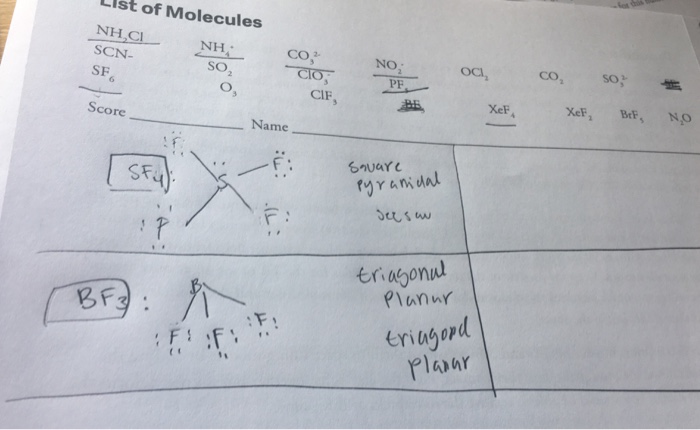 List of Molecules
NH₂Cl NH₄⁺ CO₃²⁻ NO₂⁻ OCl₂ CO₂ SO₃²⁻
SCN- SO₂ ClO₃⁻ PF₃
SF₆ O₃ ClF₃ XeF₄ XeF₂ BrF₅ N₂O
Score Name
SF₄: :F: S F: square
pyramidal
:P F: see saw
BF3: B triagonal
Planar
:F: :F: :F: triagonal
planar